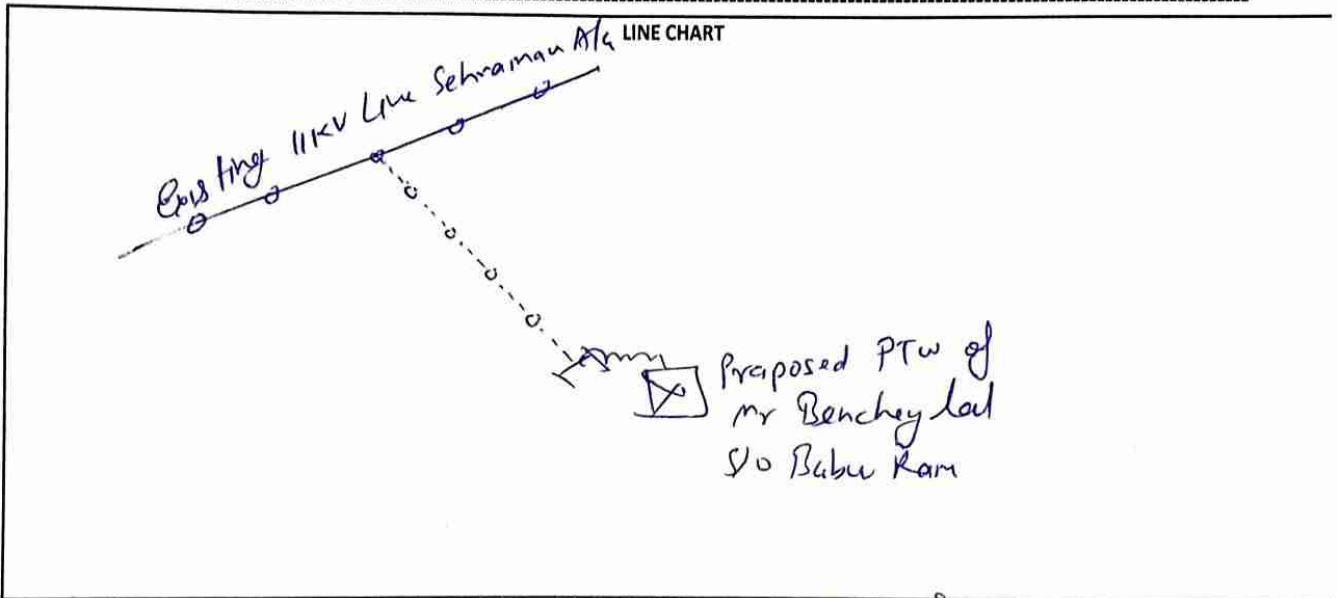 LINE CHART
Existing 11KV Line Sehraman A/g
Proposed PTW of
Mr Benchey lal
S/o Babu Ram